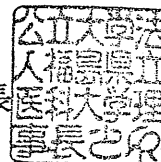 公立大学法
人福島県立
医科大学理
事長之印
長